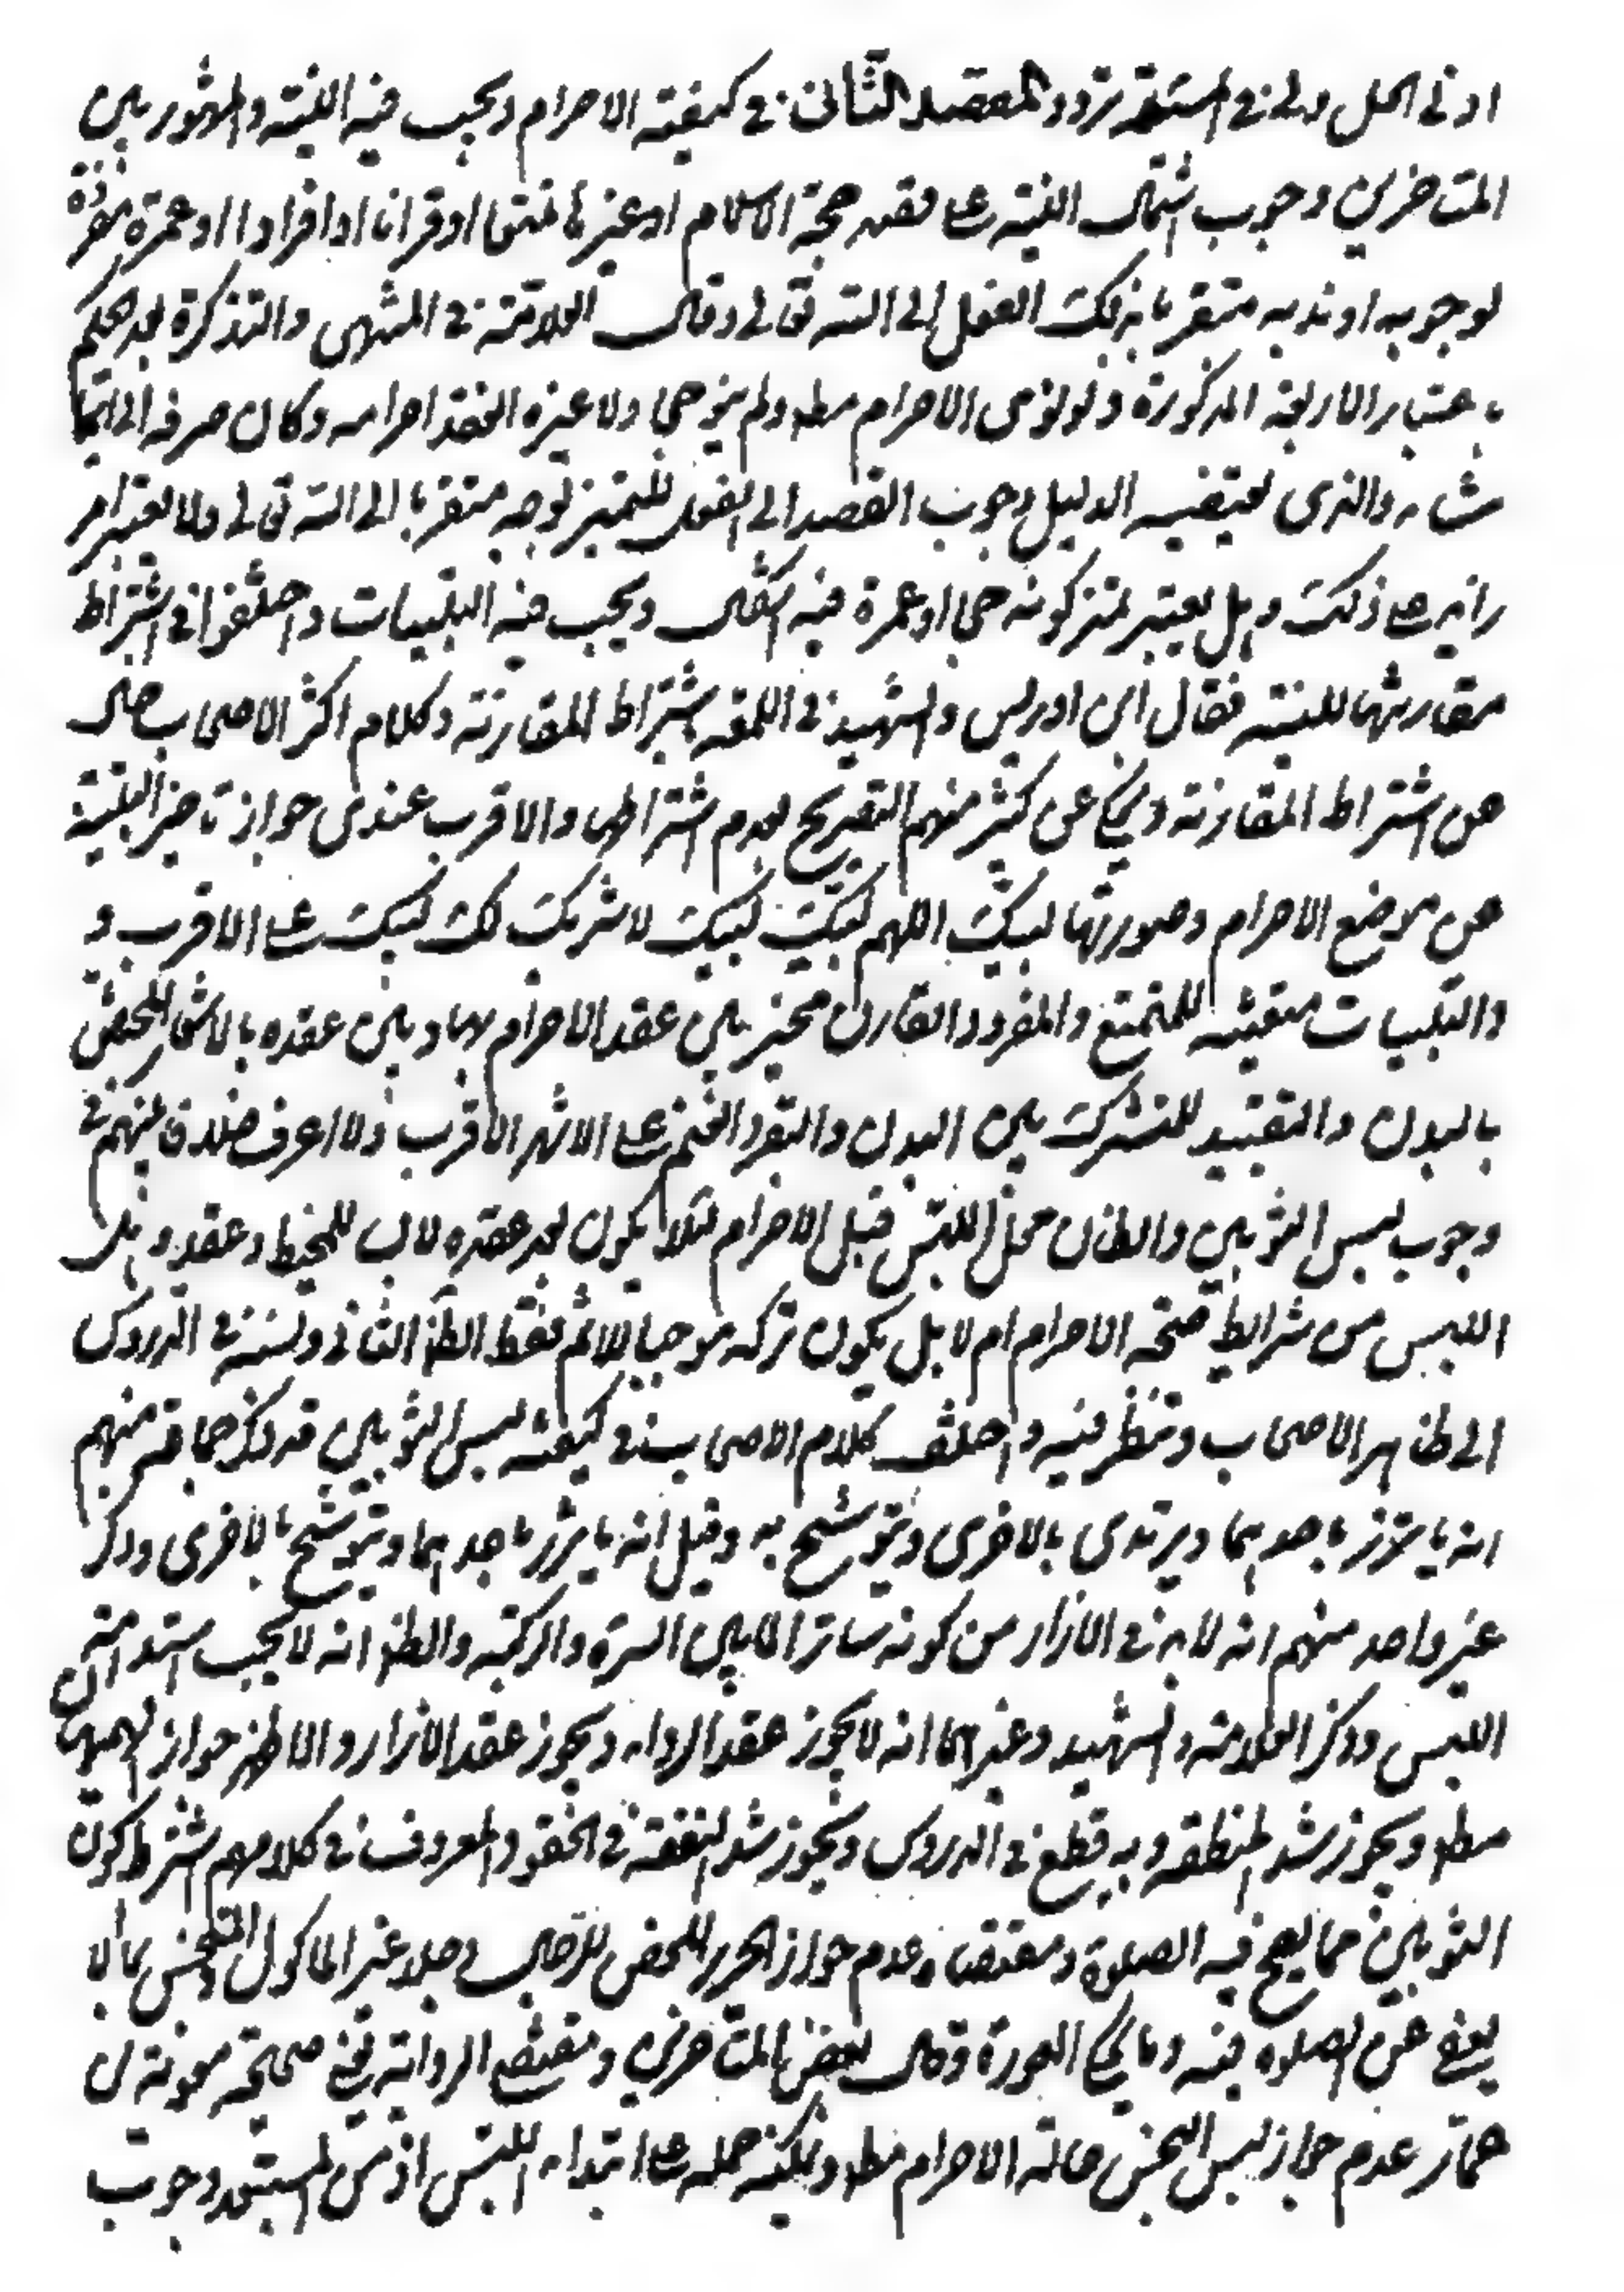 ادنى الحل ولى في المسئلة تردد المقصد الثانى في كيفية الاحرام ويجب فيه النية والمشهور بين
المتاخرين وجوب اشتمال النية على قصد حجة الاسلام او غيرها تمتعا او قرانا او افرادا او عمرة مفردة
لوجوبه او ندبه متقربا بذلك الفعل الى الله تعالى وقال العلامة في المنتهى والتذكرة بعد الحكم
باعتبار الاربعة المذكورة ولو نوى الاحرام مطلقا ولم ينو حجا ولا عمرة انعقد احرامه وكان صرفه الى ايهما
شاء والذى يقتضيه الدليل وجوب القصد الى الفعل المتميز بوجه متقربا الى الله تعالى ولا يعتبر امر
زايد على ذلك وهل يعتبر تميز كونه حجا او عمرة فيه اشكال ويجب فيه التلبيات واختلفوا في اشتراط
مقارنتها للنية فقال ابن ادريس والشهيد في اللمعة باشتراط المقارنة وكلام اكثر الاصحاب خال
عن اشتراط المقارنة وحكى عن كثير منهم التصريح بعدم اشتراطها والاقرب عندى جواز تاخير التلبية
عن موضع الاحرام وصورتها لبيك اللهم لبيك لبيك لا شريك لك لبيك على الاقرب و
والتلبيات متعينة للمتمتع والمفرد والقارن مخير بين عقد الاحرام بها وبين عقده بالاشعار المختص
بالبدن والتقليد المشترك بين البدن والبقر والغنم على الاشهر الاقرب ولا اعرف خلافا بينهم في
وجوب لبس الثوبين والظان محل اللبس قبل الاحرام لئلا يكون بعد عقده لابسا للمخيط وعقد وهل
اللبس من شرايط صحة الاحرام ام لا بل يكون تركه موجبا للاثم فقط الظ الثانى ونسبه في الدروس
الى ظاهر الاصحاب وتنظر فيه واختلف كلام الاصحاب في كيفية لبس الثوبين فذكر جماعة منهم
انه ياتزر باحدهما ويرتدى بالاخرى ويتوشح به وقيل انه ياتزر باحدهما ويتوشح بالاخرى وذكر
غير واحد منهم انه لابد في الازار من كونه ساترا لما بين السرة والركبة والظ انه لا يجب استدامة
اللبس وذكر العلامة والشهيد وغيرهما انه لا يجوز عقد الرداء ويجوز عقد الازار والاظهر جواز لبس الهميان
مطلقا ويجوز شد المنطقة وبه قطع في الدروس ويجوز شد النفقة في الحقو والمعروف في كلامهم اشتراط كون
الثوبين مما يصح فيه الصلوة ومقتضاه عدم جواز الحرير المحض للرجال وجلد غير الماكول والمتنجس بما لا
يعفى عن الصلوة فيه وما يحكى العورة وقال بعض المتاخرين ومقتضى الرواية يعنى صحيحة معوية بن
عمار عدم جواز لبس النجس حالة الاحرام مطلقا ويمكن حمله على ابتداء اللبس اذ من المستبعد وجوب